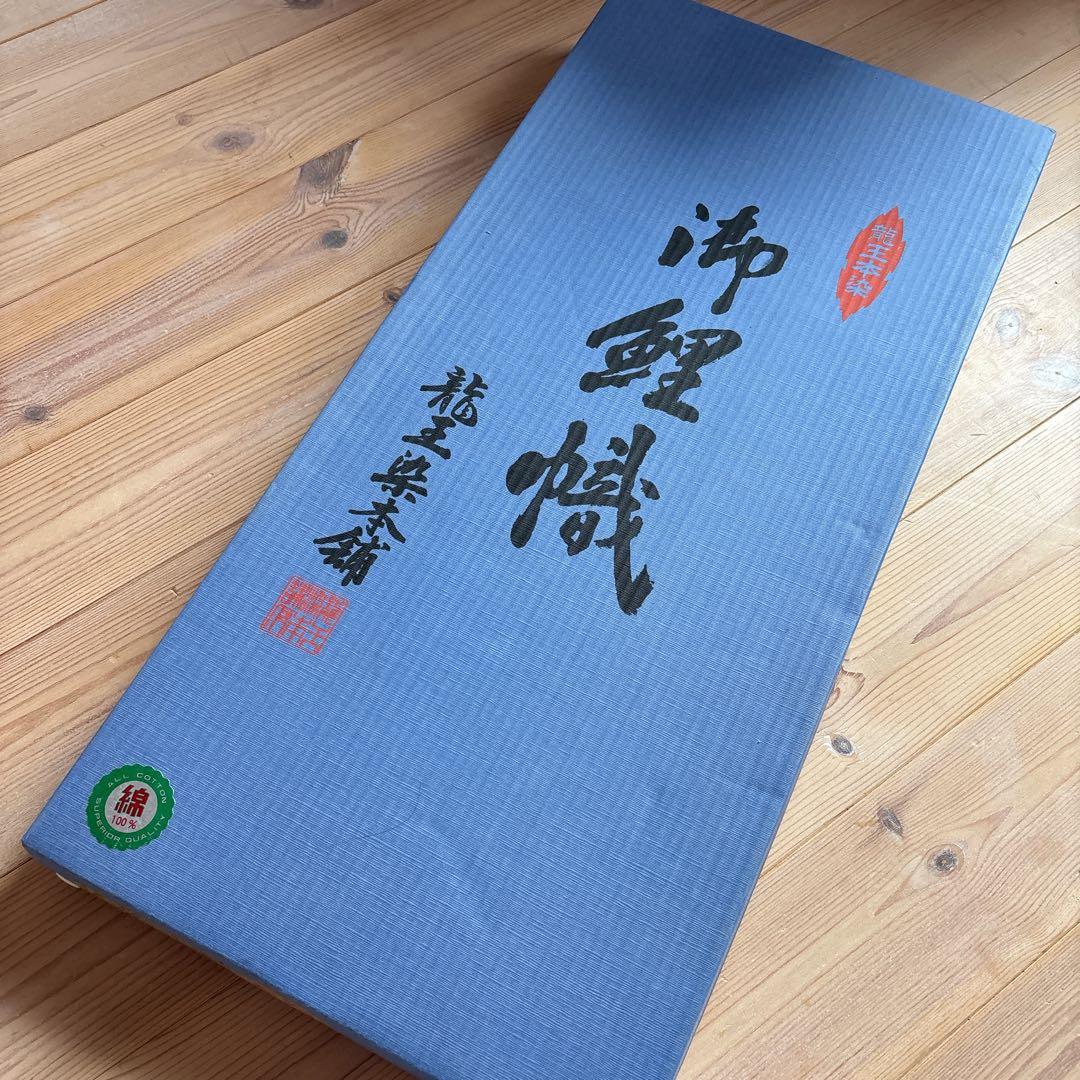 龍王本染
御鯉幟
龍王染本舗
ALL COTTON
綿
100%
SUPERIOR QUALITY